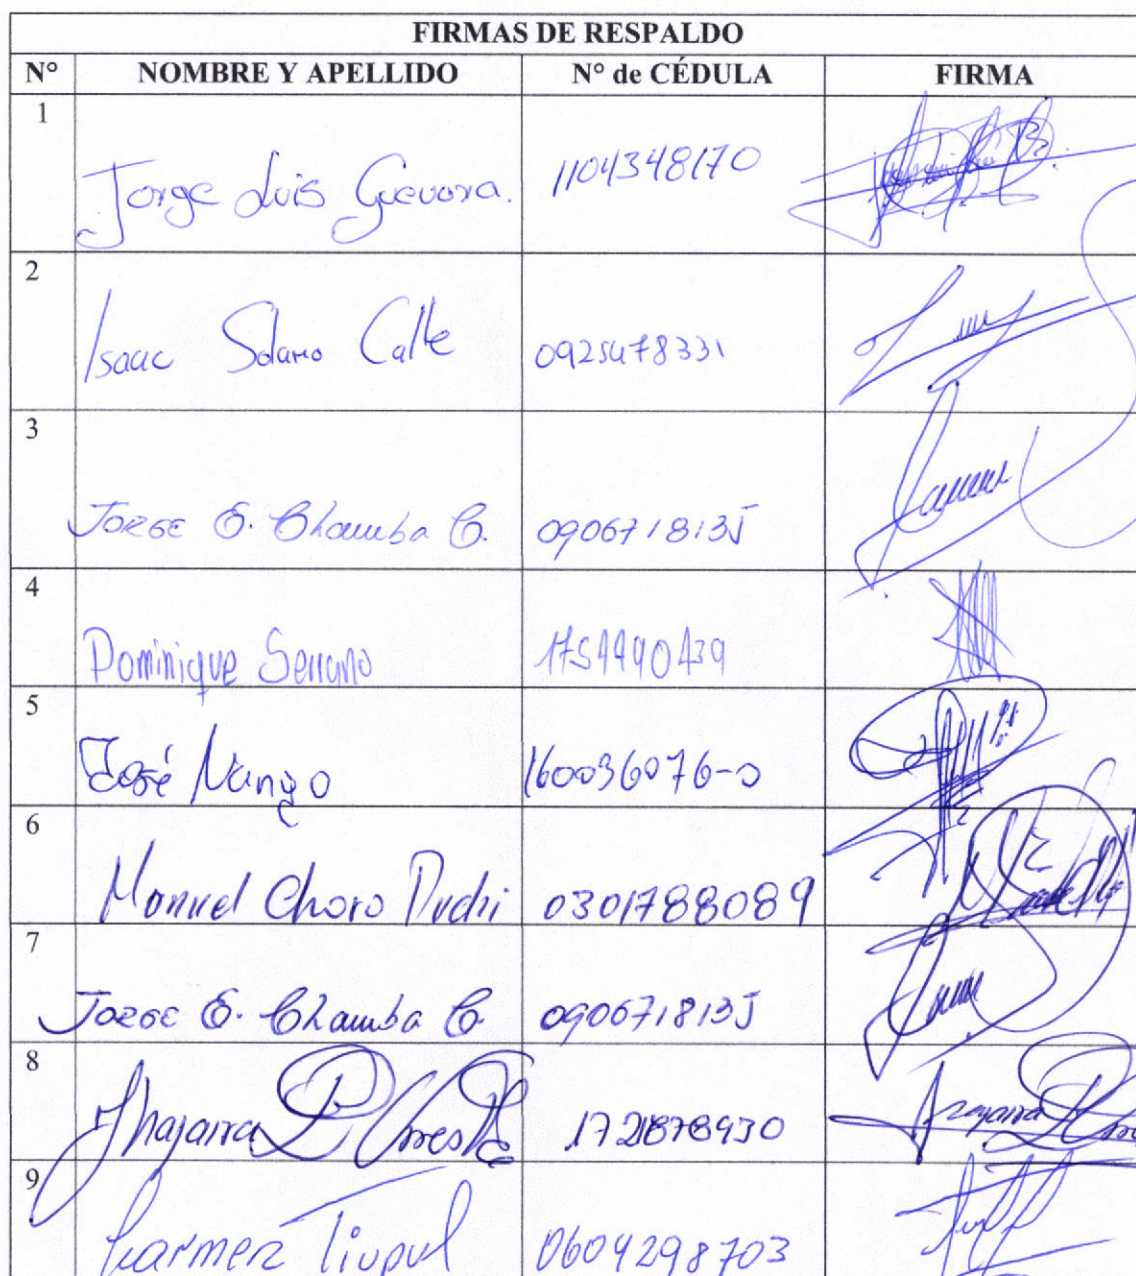 FIRMAS DE RESPALDO
N° NOMBRE Y APELLIDO N° de CÉDULA FIRMA
1 Jorge Luis Guevara. 1104348170
2 Isaac Solano Calle 0925478331
3 Jorge E. Chamba C. 0906718135
4 Dominique Serrano
5 José Nango 160036076-0
6 Manuel Choro Duchi 0301788089
7 Jorge E. Chamba C. 0906718135
8 1721878930
9 Carmen 0604298703